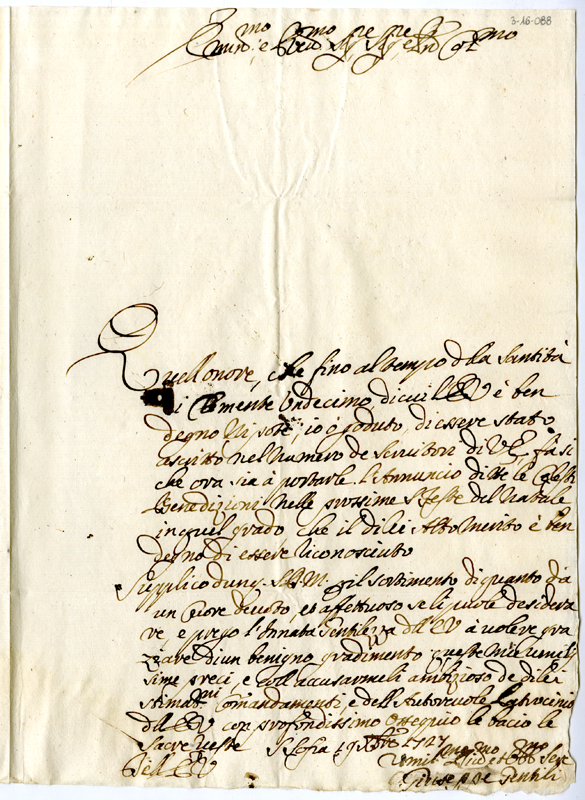 3-16-088
Em.mo e
Quell onore, che fino al tempo della Santità
di Clemente Undecimo di cui l'EV è ben
degno Nipote, io ò goduto, di essere stato
ascritto nel numero de Servitori di VE, fa si
che ora sia à portarle l'Annuncio di tte le Celesti
Benedizioni nelle prossime Ste Feste del Natale
in quel grado, che il di lei Alto Merito è ben
degno di essere riconosciuto
Supplico dunq. S.D.M. p il sortimento di quanto da
un Cuore devoto, et affettuoso se li puole desidera
re, e prego l'Innata Gentilezza dell EV à volere gra
ziare di un benigno gradimento queste mie umilis
sime preci, e coll accusarmeli ambizioso de di lei
stimat.mi Comandamenti, e dell Autorevole Patrocinio
dell EV con profondissimo Ossequio le bacio le
Sacre Veste 1727
Dell EV
Giuseppe Gentili